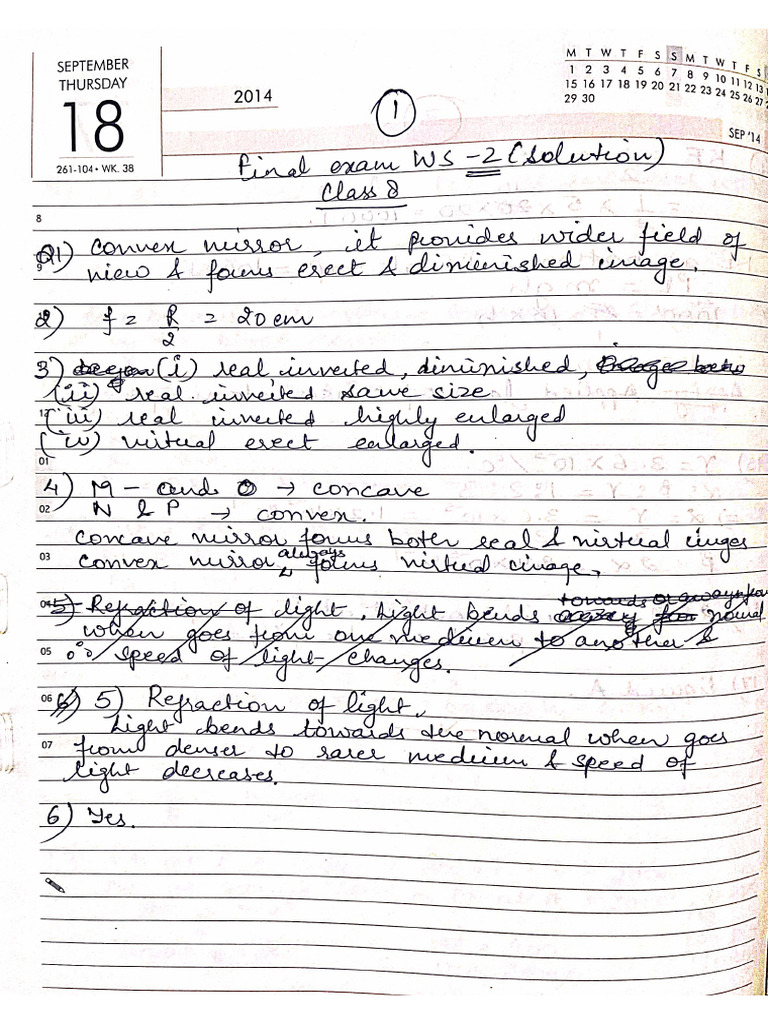 SEPTEMBER
THURSDAY
18
261-104 • WK. 38
2014
1
M T W T F S S M T W T F S
1 2 3 4 5 6 7 8 9 10 11 12 13
15 16 17 18 19 20 21 22 23 24 25 26 27
29 30
SEP '14
Final exam WS -2 (Solution)
Class 8
8
Q1) Convex mirror, it provides wider field of
9
view & forms erect & diminished image.
2) f = R/2 = 20 cm
3) (i) real inverted, diminished,
(ii) real inverted same size
12
(iii) real inverted highly enlarged
(iv) virtual erect enlarged.
01
4) M - and O → concave
02
N & P → convex.
Concave mirror forms both real & virtual imges
03
convex mirror always forms virtual image,
04
5) Refraction of light, Light bends towards or away from normal
when goes from one medium to another &
05
∴ speed of light changes.
06
6) 5) Refraction of light,
Light bends towards the normal when goes
07
from denser to rarer medium & speed of
light decreases.
6) Yes.